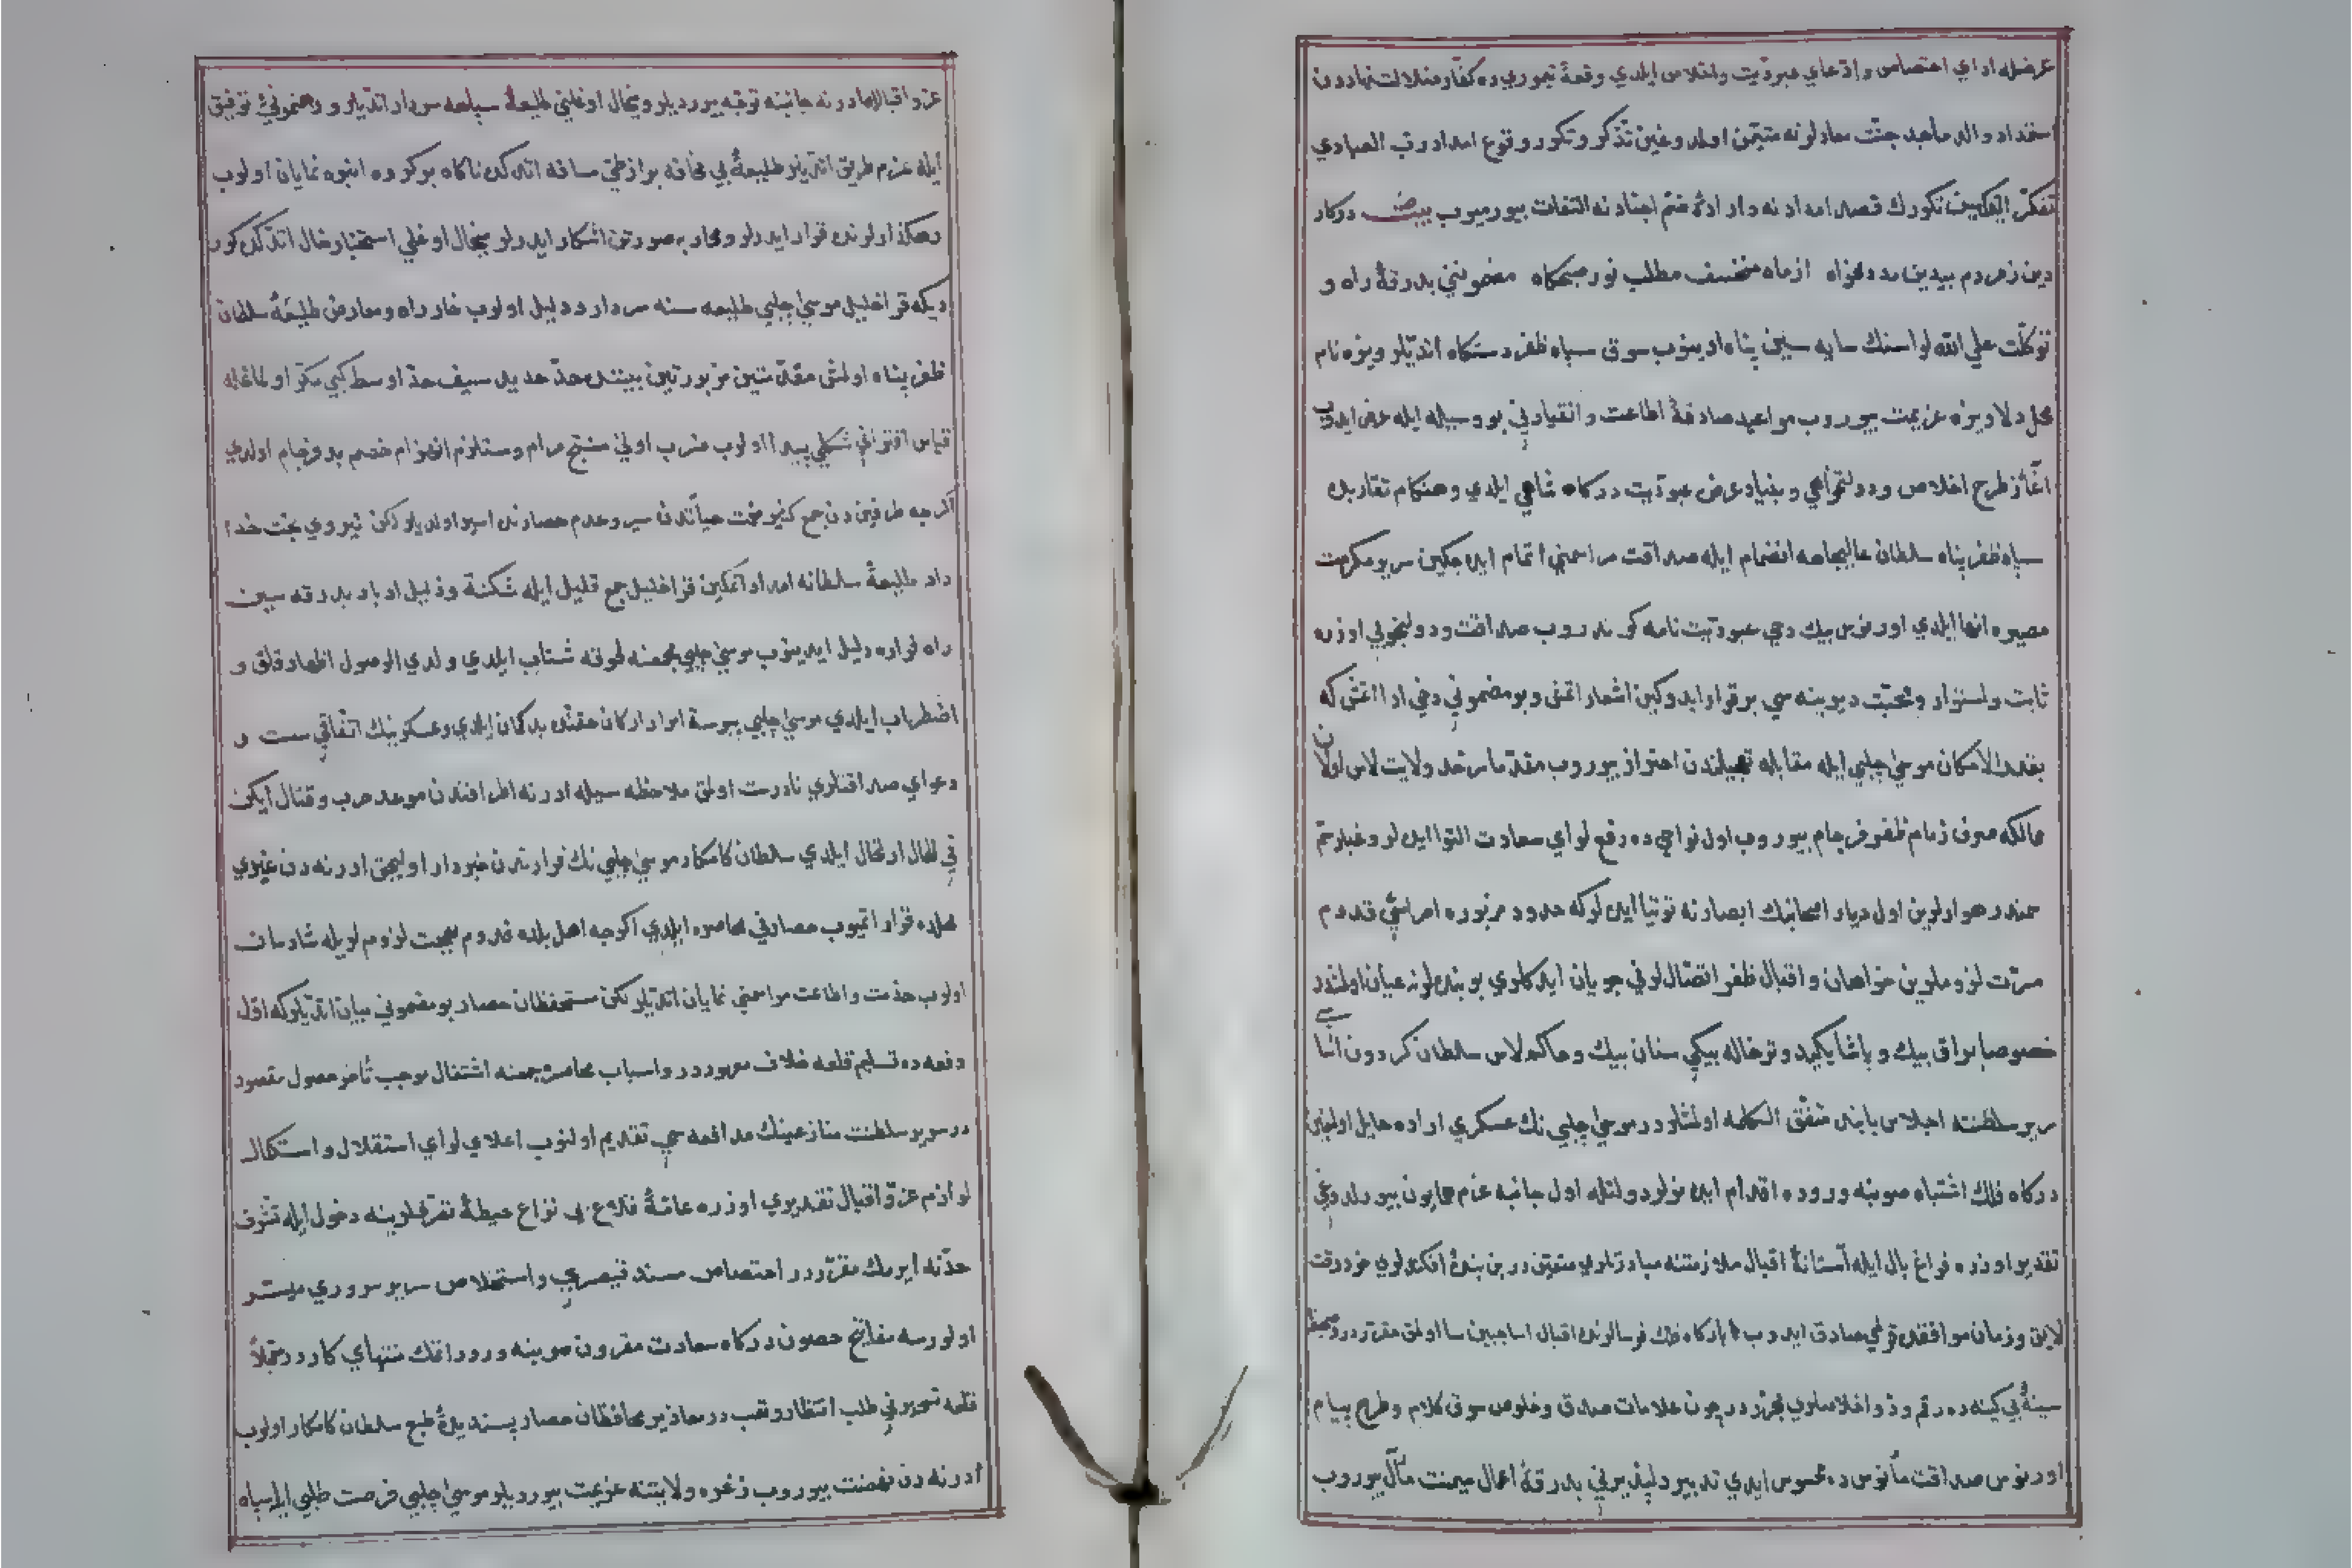 عرضله اداي اختصاص وادعاي عبوديت واخلاص ايلدي وقعهٔ تيموريده كفار ضلالت نهاددن
استمداد والد ماجد جنت معادلرنه متيقن اولدوغين تذكر وتكرر وقوع امداد رب العبادي
تفكر ايتدكلرين نكورك قصد امدادنه وارادهٔ ضم اجنادنه التفات بيورميوب بيت دركار
دين زمردم بيدين مدد مخواه از ماه منخسف مطلب نور صبحكاه مضمونني بدرقهٔ راه و
توكلت علي الله لواسنك سايه سين پناه ايدينوب سوق سپاه ظفر دستكاه اتديلر ويزه نام
محل دلاويزه عزيمت بيوروب مواعيد صادقهٔ اطاعت وانقيادني بو وسيله ايله عرض ايدوب
آغاز طرح اخلاص ودولتخواهي وبنياد عرض عبوديت دركاه شاهي ايلدي وهنكام تقاربده
سپاه ظفر پناه سلطان عاليجاهه انضمام ايله صداقت مراسمني اتمام ايده جكين سرير مكرمت
مصيره انها ايلدي اورنوس بيك دخي عبوديت نامه كوندروب صداقت ودولتجويي اوزره
ثابت واستوار ومحبت ديرينه سي برقرار ايدوكين اشعار اتمش وبو مضموني دخي ادا اتمش كه
بقدر الامكان موسي چلبي ايله مقابله تعجيلندن احتراز بيوروب مقدما سرحد ولايت لاس اولان
ممالكه صرف زمام ظفر فرجام بيوروب اول نواحي ده رفع لواي سعادت التوا ايده لر وغبار سم
سمند رهوارلرين اول ديار اصحابنك ابصارنه توتيا ايده لر كه حدود مزبوره امراسي قدوم
مسرت لزوملرين خواهان واقبال ظفر اتصاللرني جويان ايدكلري بو بنده لرنه عيان اولمشدر
خصوصا براق بيك وپاشا يكيد وترخاله بيكي سنان بيك وحاكم لاس سلطان كردون اساسي
سرير سلطنته اجلاس بابنده متفق الكلمه اولمشلردر موسي چلبي نك عسكري اراده حايل اولمغين
دركاه فلك اشتباه صوبنه وروده اقدام ايده مزلر دولتله اول جانبه عزم همايون بيورلدوغي
تقدير اوزره فراغ بال ايله آستانهٔ اقبال ملازمتنه مبادرتلري متيقن در بن بندهٔ افكنده لري خود وقت
لايق وزمان موافقده قولمي صادق ايدوب بارگاه فلك فرسالرنده اقبال اسا جبين سا اولمق مقرر در وصحيفهٔ
سينهٔ بي كينه ده رقم ورد اخلاصلري محرردر چون علامات صدق وخلوص سوق كلام وطرح پيام
اورنوس صداقت مأنوس ده محسوس ايدي تدبير دلپذيرني بدرقهٔ اعمال ميمنت مآل بيوروب
عز واقبالله ادرنه جانبنه توجه بيورديلر وميخال اوغلني طليعهٔ سپاهه سردار اتديلر ورهنموني توفيق
ايله عزم طريق اتديلر طليعهٔ بي مخافه براز طي مسافه اتدكده ناكاه بر كروه انبوه نمايان اولوب
رهكذارلرنده قرار ايدرلر ومحاربه صورتن اشكار ايدرلر ميخال اوغلي استخبار حال اتدكده كورر
ديكه قرا خليل موسي چلبي طليعه سنه سردار ودليل اولوب خار راه ومعارض طليعهٔ سلطان
ظفر پناه اولمش مقدمتين مزبورتين بيننده حد حديد سيف حد اوسط كبي مكرر اولماغله
قياس اقتراني شكلي پيدا اولوب ضرب اولي منتج مرام ومستلزم انهزام خصم بد فرجام اولدي
اكرچه طرفين دن جمع كثير تخت حياتدن سير وعدم حصارنده اسير اولديلر لكن نيروي بخت خدا
داد طليعهٔ سلطانه امداد اتمكين قرا خليل جمع قليل ايله شكسته وذليل ادبار بدرقه سين
راه فراره دليل ايدينوب موسي چلبي مجمعنه لحوقه شتاب ايلدي ولدي الوصول اظهار قلق و
اضطراب ايلدي موسي چلبي پيوسته امرا واركان حقنده بدكمان ايدي وعسكرينك اتفاقي سست و
دعواي صداقتلري نادرست اولمق ملاحظه سيله ادرنه اطرافندن موعد حرب وقتال ايكن
في الحال ارتحال ايلدي سلطان كامكار موسي چلبي نك فرارندن خبردار اوليجق ادرنه دن غيري
محلده قرار اتميوب حصارني محاصره ايلدي اكرچه اهل بلده قدوم بهجت لزوملريله شادمان
اولوب خدمت واطاعت مراسمني نمايان اتديلر لكن مستحفظان حصار بو مضموني بيان اتديلر كه اول
دفعه ده تسليم قلعه خلاف معهوددر واسباب محاصره جمعنه اشتغال موجب تأخر حصول مقصود
در سرير سلطنت منازعينك مدافعه سي تقديم اولنوب اعلاي لواي استقلال واستكمال
لوازم عز واقبال تقديري اوزره عامهٔ قلاع بي نزاع حيطهٔ تصرفلرينه دخول ايله تشرف
حدنه ايرمك مقرردر اختصاص مسند قيصري واستخلاص سرير سروري ميسر
اولورسه مفاتيح حصون دركاه سعادت مقرون صوبنه ورود اتمك منتهاي كاردر مجملاً
قلعه تسخيرني طلب انتظار وتعب در معاذير محافظان حصار پسنديدهٔ طبع سلطان كامكار اولوب
ادرنه دن نهضت بيوروب زغره ولايتنه عزيمت بيورديلر موسي چلبي فرصت طلبي ايله سپاه